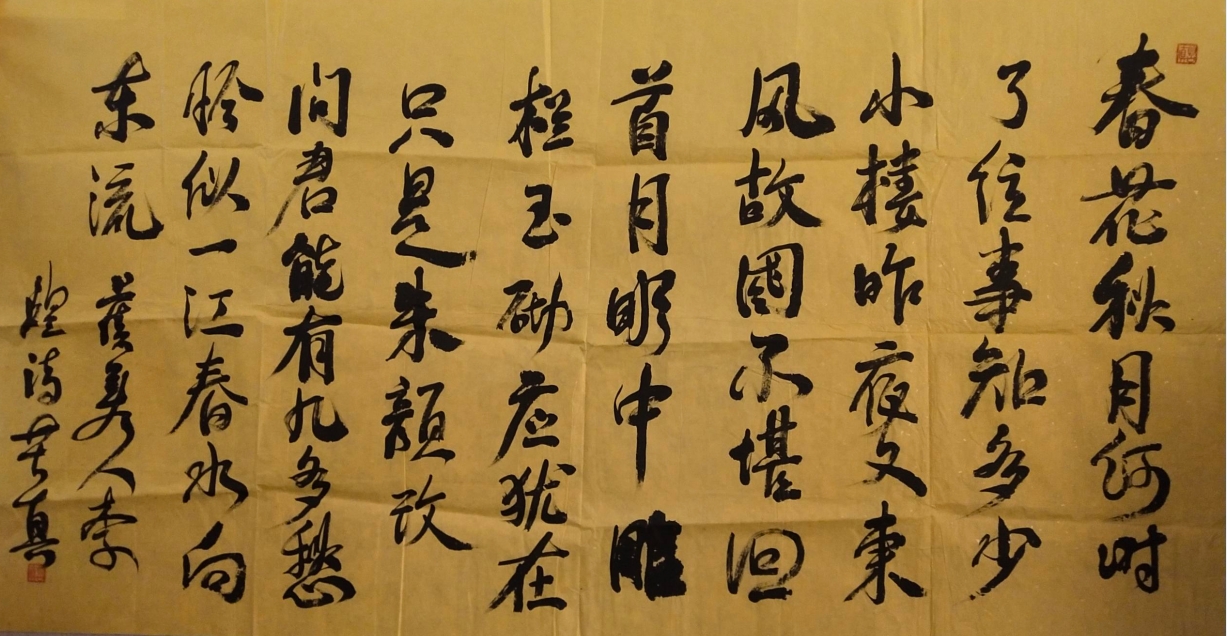 春花秋月何时
了往事知多少
小楼昨夜又東
風故國不堪回
首月明中雕
栏玉砌应犹在
只是朱顏改
问君能有几多愁
恰似一江春水向
东流 虞美人李
煜 真